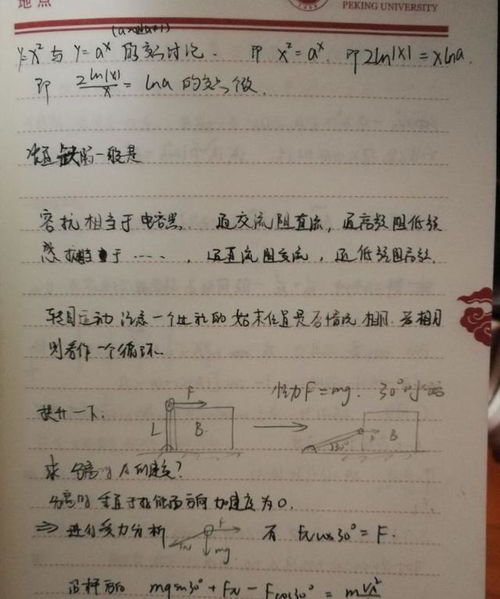 地点
PEKING UNIVERSITY
(a>0且a≠1)
y=x² 与 y=a^x 的交点讨论. 即 x²=a^x. 即 2ln|x|=xlna
即 2ln|x|/x = lna 的交点数.
缺的一般是
容抗相当于电容器. 通交流阻直流，通高频阻低频
感抗相当于……，通直流阻交流，通低频阻高频.
运动 注意一个过程的始末位置是否情况相同. 若相同
则看作一个循环.
提升一下: L F B 恒力F=mg. 30° B
求 分离时 A 的速度?
分离时 垂直于 方向加速度为0.
⇒ 进行受力分析 F_N F mg 有 F_N cos30° = F.
沿杆方向 mgsin30° + F_N - Fcos30° = m v_A²